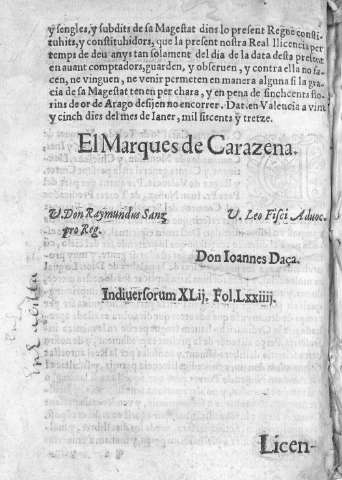 y sengles, y subdits de sa Magestat dins lo present Regne consti-
tuhits, y constituhidors, que la present nostra Real llicencia per
temps de deu anys tan solament del dia de la data desta present
en auant comptadors, guarden, y obseruen, y contra ella no fa-
cen, ne vinguen, ne venir permeten en manera alguna si la gra-
cia de sa Magestat tenen per chara, y en pena de sinchcents flo-
rins de or de Arago desijen no encorrer. Dat. en Valencia a vint
y cinch dies del mes de Ianer, mil siscents y tretze.
El Marques de Carazena.
V. Don Raymundus Sanz
pro Reg.
V. Leo Fisci Aduoc.
Don Ioannes Daça.
Indiuersorum XLij. Fol. Lxxiiij.
Licen-